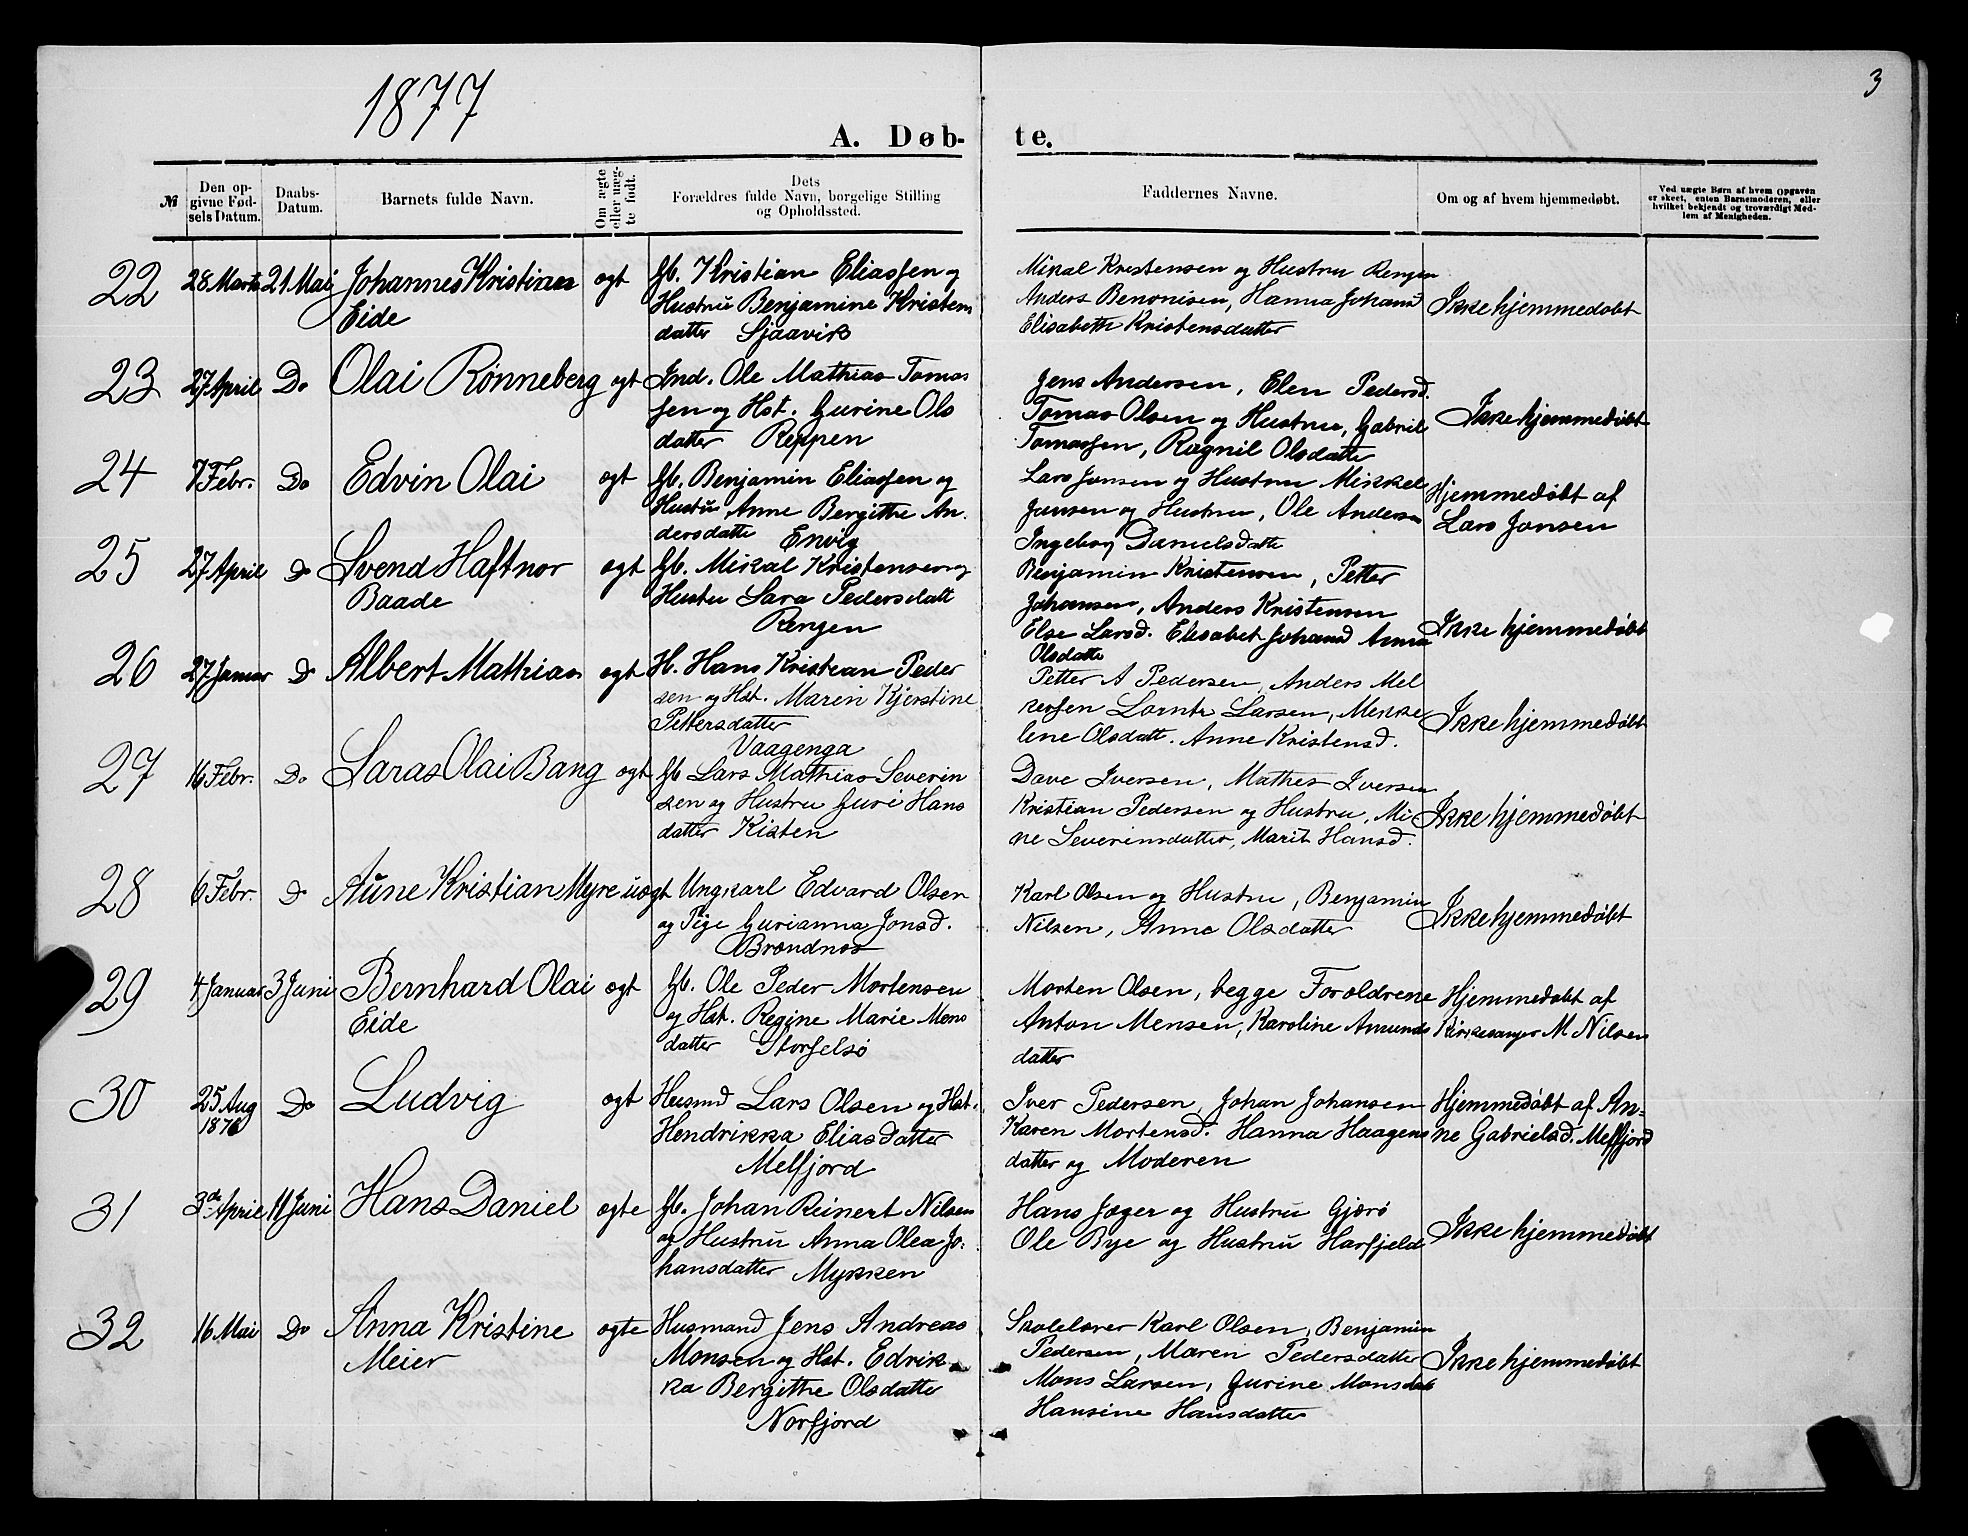 1877
3
A. Døb-
te.
№
Den op-
givne Fød-
sels Datum.
Daabs-
Datum.
Barnets fulde Navn.
Om ægte
eller uæg-
te født.
Dets
Forældres fulde Navn, borgelige Stilling
og Opholdssted.
Faddernes Navne.
Om og af hvem hjemmedøbt.
Ved uægte Børn af hvem Opgaven
er skeet, enten Barnemoderen, eller
hvilket bekjendt og troværdigt Med-
lem af Menigheden.
22
28 Marts
21 Mai
Johannes Kristian
Eide
ogt
Gb. Kristian Eliassen og
Hustru Benjamine Kristens
datter Sjaavik
Mikal Kristensen og Hustru Rengen
Anders Benonisen, Hanna Johansd
Elisabeth Kristensdatter
Ikke hjemmedøbt
23
27 April
Do
Olai Rönneberg
ogt
Ind. Ole Mathias Tomas
sen og Hst. Gurine Ols
datter Reppen
Jens Andersen, Elen Pedersd.
Tomas Olsen og Hustru, Gabriel
Tomassen, Ragnil Olsdatte
Ikke hjemmedøbt
24
7 Febr.
Do
Edvin Olai
ogt
Gb. Benjamin Eliassen og
Hustu Anne Bergitte An.
dersdatte Envig
Lars Jonsen og Hustru Mikkel
Jonsen og Hustru, Ole Andersen
Ingeborg Danielsdatte
Hjemmedøbt af
Lars Jonsen
25
27 April
Do
Svend Haftnor
Baade
ogt
Gb. Mikal Kristensen og
Hustu Sara Pedersdatt
Rengen
Benjamin Kristensen, Petter
Johansen, Anders Kristensen
Else Larsd. Elisabet Johansd Anna
Olsdatte
Ikke hjemmedøbt
26
27 Januar
Do
Albert Mathias
ogt
H. Hans Kristian Peder
sen og Hst. Maren Kjerstine
Pettersdatter
Vaagenga
Petter A Pedersen, Anders Mel
kersen Lorntz Larsen, Mekke
lene Olsdatt. Anne Kristensd.
Ikke hjemmedøbt
27
16 Febr.
Do
Laras Olai Bang
ogt
Gb Lars Mathias Severin
sen og Hustru Guri Hans
datter Kisten
Dave Iversen, Mathis Iversen
Kristian Pedersen og Hustru, Mi
ne Severinsdatter, Marit Hansd.
Ikke hjemmedøbt
28
6 Febr.
Do
Aune Kristian Myre
uogt
Ungkarl Edvard Olsen
og Pige Gurianna Jonsd.
Brændnos
Karl Olsen og Hustru, Benjamin
Nilsen, Anne Olsdatter
Ikke hjemmedøbt
29
4 Januar
3 Juni
Bernhard Olai
Eide
ogt
Gb. Ole Peder Mortensen
og Hst. Regine Marie Mons
datter Storselsö
Morten Olsen, begge Foroldrene
Anton Mensen, Karoline Amunds
datter
Hjemmedøbt af
Kirkesanger M Nilsen
30
25 Aug
1876
Do
Ludvig
ogt
Husmd Lars Olsen og Hst.
Hendrikka Eliasdatter
Melfjord
Iver Pedersen, Johan Johansen
Karen Mortensd. Hanna Haagens
datter og Moderen
Hjemmedøbt af An-
ne Gabrielsd. Melfjord
31
3de April
11 Juni
Hans Daniel
ogte
Gb. Johan Reinert Nilsen
og Hustru Anna Olea Jo:
hansdatter Mykken
Hans Jæger og Hustru Gjørö
Ole Bye og Hustru Harfjeld
Ikke hjemmedøbt
32
16 Mai
Do
Anna Kristine
Meier
ogte
Husmand Jens Andreas
Monsen og Hst. Edrik
ka Bergitte Olsdatte
Norfjord
Skolelorer Karl Olsen, Benjamin
Pedersen, Maren Pedersdatter
Mons Larsen, Gurine Monsdatt
Hansine Hansdatte
Ikke hjemmedøbt